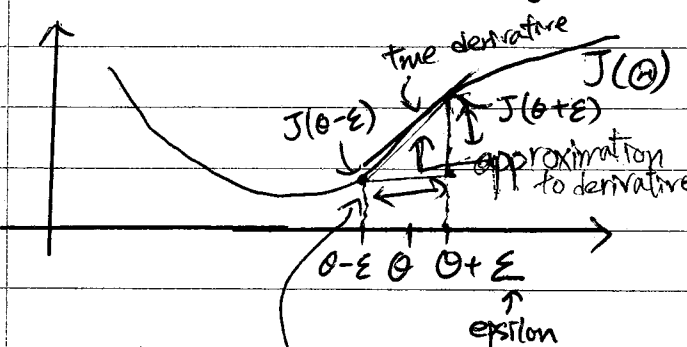 true derivative
J(Θ)
J(θ-ε)
J(θ+ε)
approximation
to derivative
θ-ε θ θ+ε
epsilon